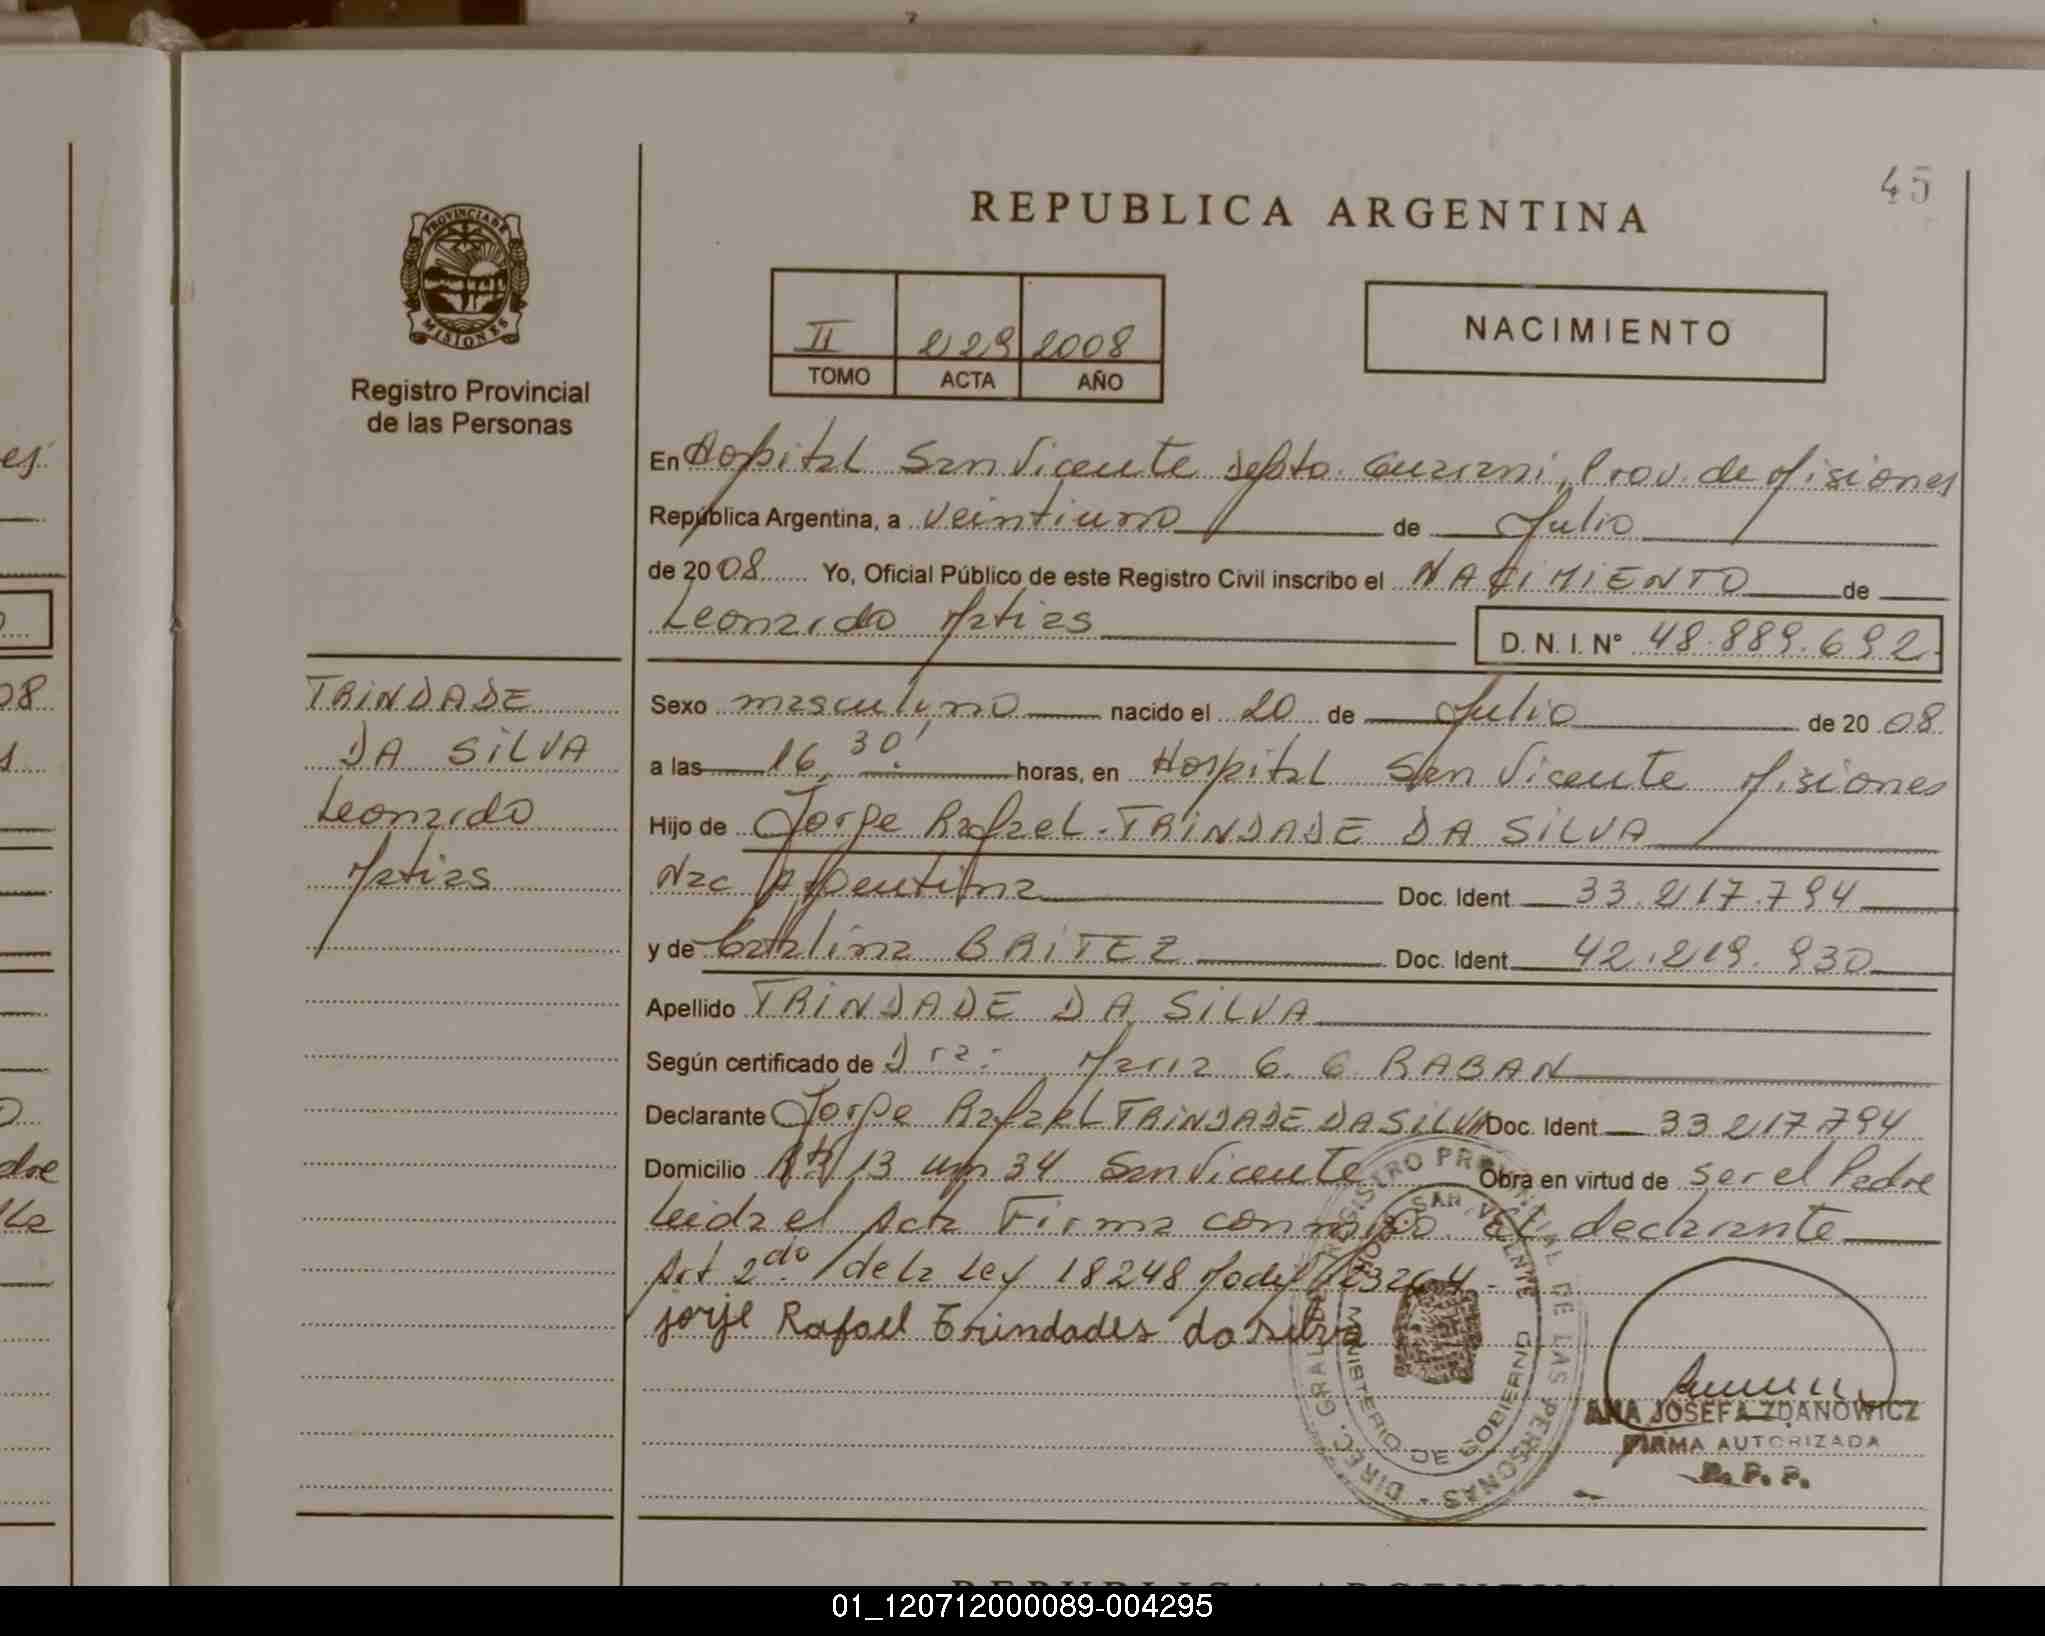 45
REPUBLICA ARGENTINA
PROVINCIA DE
MISIONES
Registro Provincial
de las Personas
II 229 2008
TOMO ACTA AÑO
NACIMIENTO
En Hospital San Vicente Depto. Guarani, Prov. de Misiones
República Argentina, a veintiuno de Julio
de 2008 Yo, Oficial Público de este Registro Civil inscribo el NACIMIENTO de
Leonardo Matias D. N. I. N° 48.889.692
TRINDADE
DA SILVA
Leonardo
Matias
Sexo masculino nacido el 20 de Julio de 2008
a las 16,30' horas, en Hospital San Vicente Misiones
Hijo de Jorge Rafael TRINDADE DA SILVA
Nac Argentina Doc. Ident 33.217.794
y de Catalina BRITEZ Doc. Ident 42.219.930
Apellido TRINDADE DA SILVA
Según certificado de Dra: Maria G. G. RABAN
Declarante Jorge Rafael TRINDADE DA SILVA Doc. Ident 33 217 794
Domicilio Rta 13 km 34 San Vicente Obra en virtud de ser el Padre
Leida el Acta Firma conmigo el declarante
Art 2do de la Ley 18248 Modif 23264 -
jorje Rafael Trindades da silva
DIREC. GRAL. DEL REGISTRO PROVINCIAL DE LAS PERSONAS -
HOSP. SAN VICENTE
MINISTERIO DE GOBIERNO
ANA JOSEFA ZDANOWICZ
FIRMA AUTORIZADA
R. P. P.
REPUBLICA ARGENTINA
es
08
dre
01_120712000089-004295